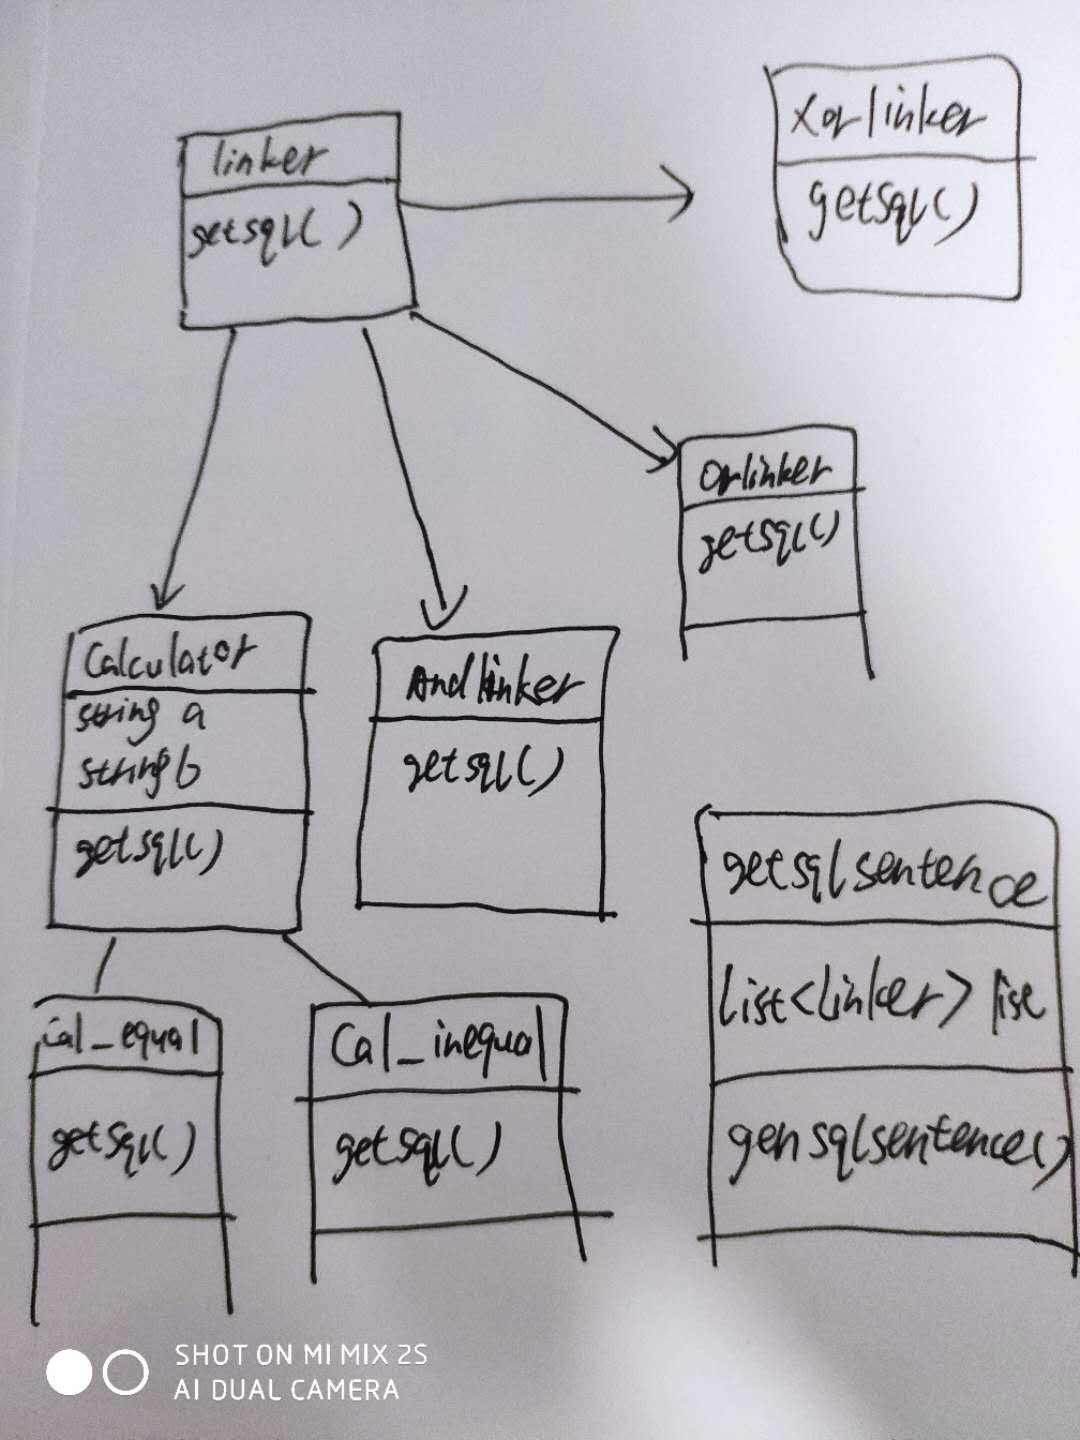 linker
getsql( )
Xorlinker
getsql()
Orlinker
getsql()
Calculator
string a
string b
getsql()
Andlinker
getsql()
getsqlsentence
List<linker> list
gensqlsentence()
Cal_equal
getsql()
Cal_inequal
getsql()
SHOT ON MI MIX 2S
AI DUAL CAMERA